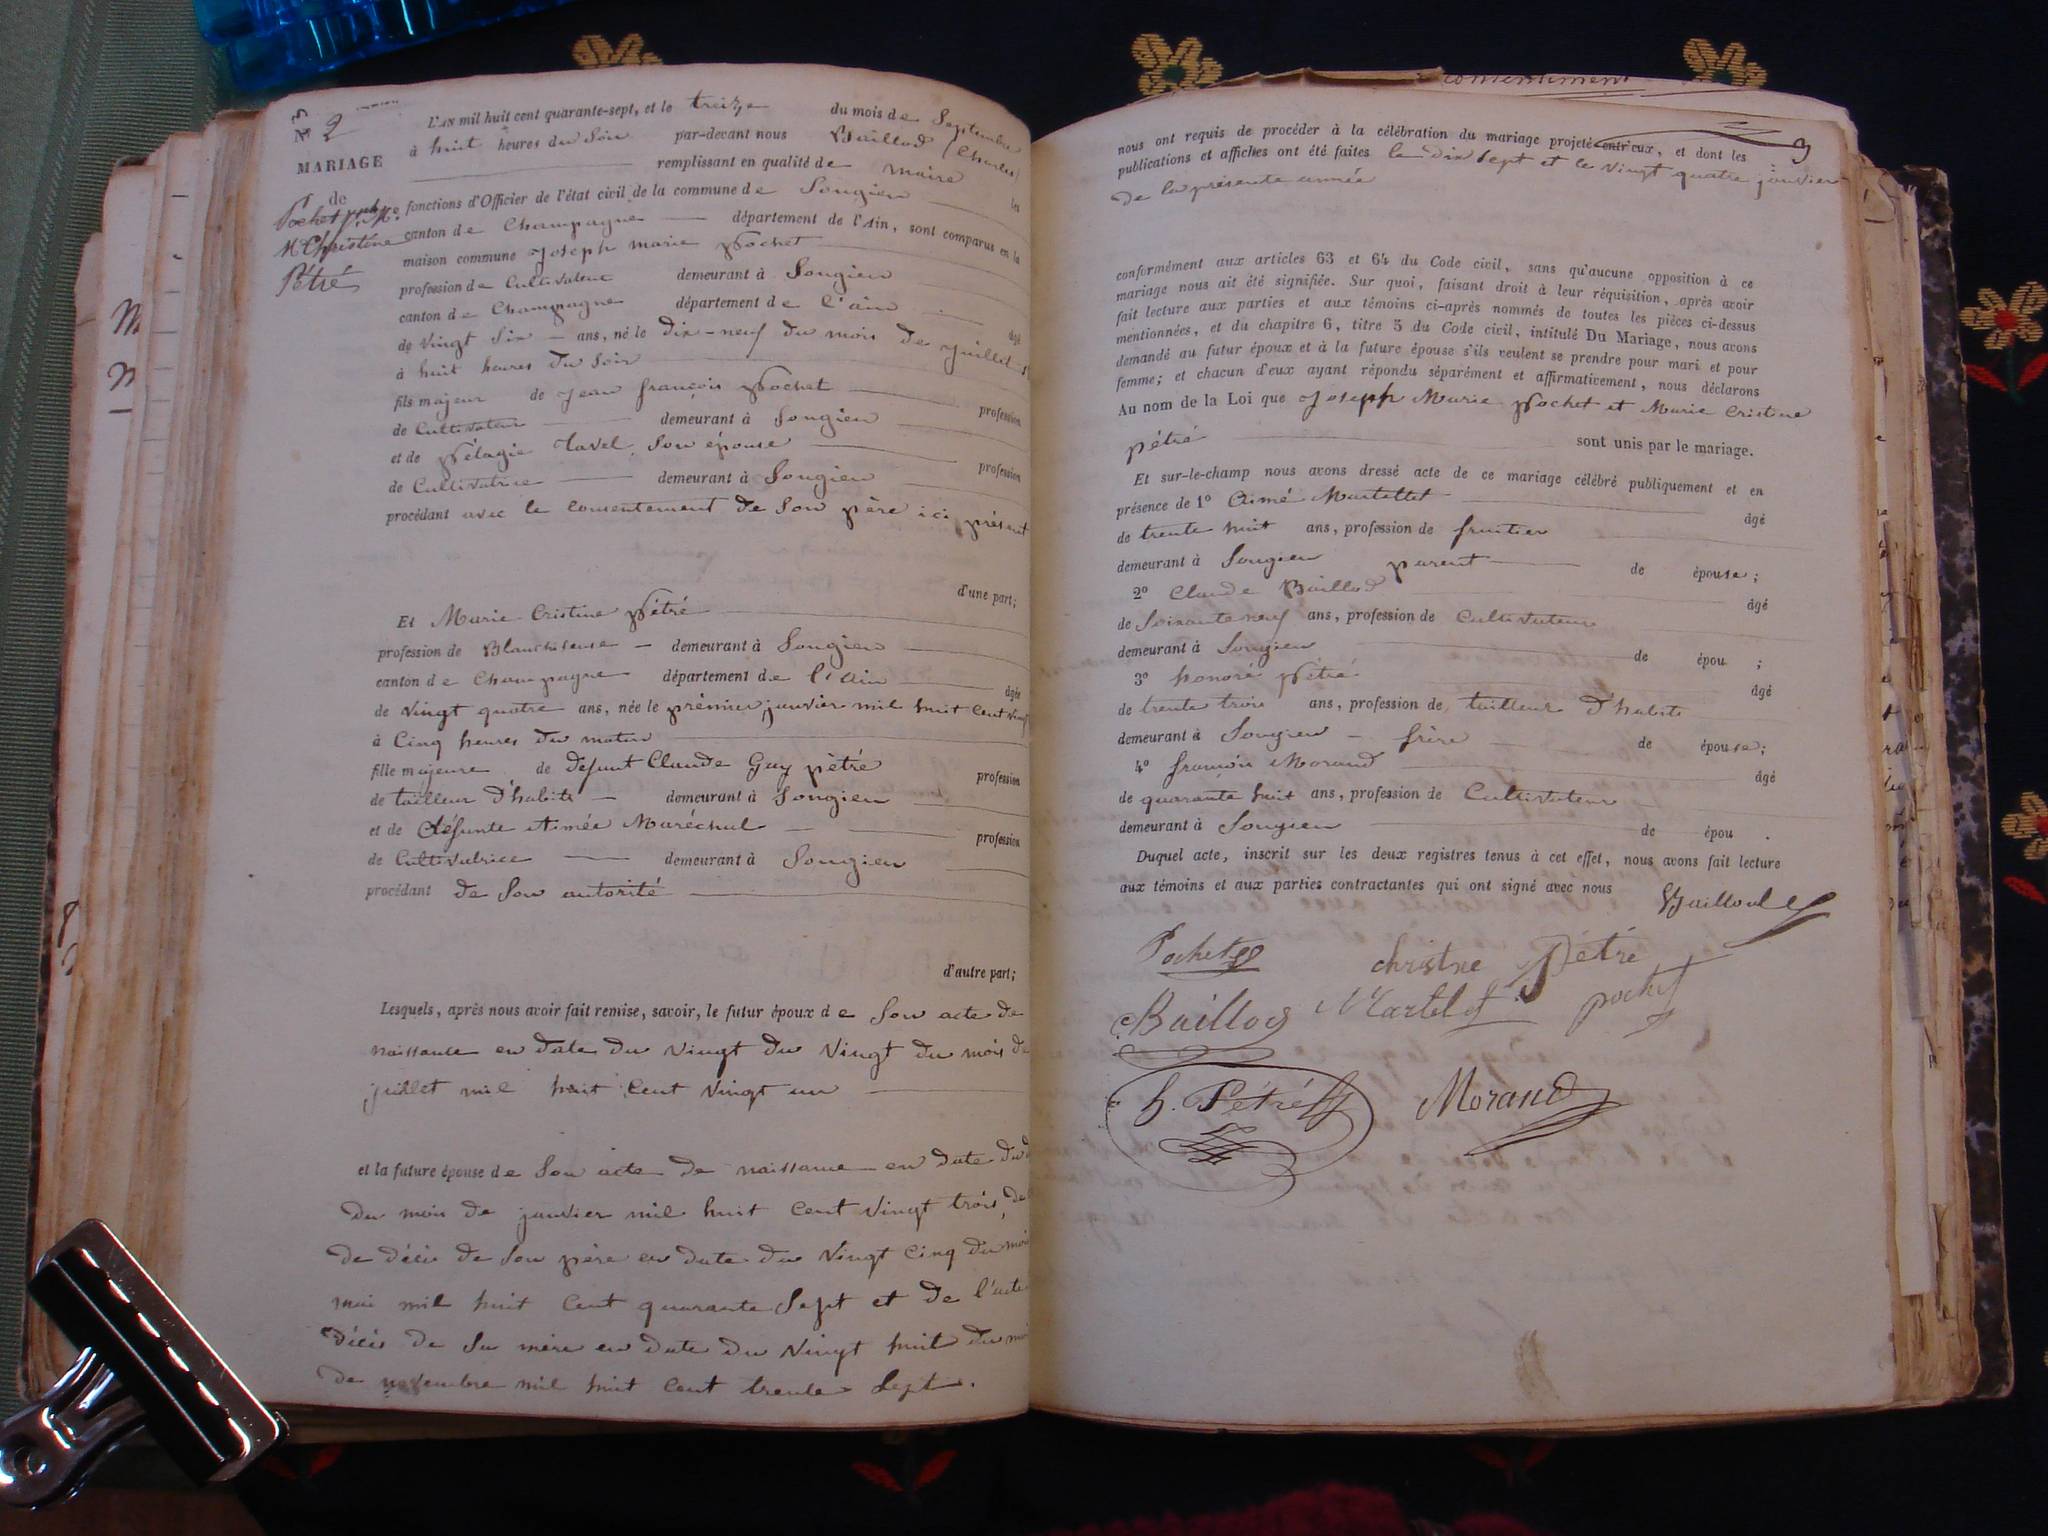 N° 2
MARIAGE
de
Pochet
M Christine
Pétré
L'AN mil huit cent quarante-sept, et le treize du mois de Septembre
à huit heures du Soir par-devant nous Baillod (Charles)
remplissant en qualité de maire les
fonctions d'Officier de l'état civil de la commune de Songieu
canton de Champagne département de l'Ain, sont comparus en la
maison commune Joseph marie Pochet
profession de Cultivateur demeurant à Songieu
canton de Champagne département de l'ain âgé
de vingt Six ans, né le dix-neuf du mois de juillet
à huit heures du Soir
fils majeur de Jean françois Pochet profession
de Cultivateur demeurant à Songieu
et de Pélagie Tavel, Son épouse profession
de Cultivatrice demeurant à Songieu
procédant avec le consentement de Son père ici présent
d'une part;
Et Marie Cristine Pétré
profession de Blanchiseuse demeurant à Songieu
canton de Champagne département de l'ain âgée
de vingt quatre ans, née le prémier janvier mil huit Cent vingt
à Cinq heures du matin
fille majeure de défunt Claude Guy pétré profession
de tailleur d'habits demeurant à Songieu
et de défunte Aimée Maréchal profession
de Cultivatrice demeurant à Songieu
procédant de Son autorité
d'autre part;
Lesquels, après nous avoir fait remise, savoir, le futur époux de Son acte de
naissance en date du vingt du vingt du mois de
juillet mil huit Cent vingt un
et la future épouse de Son acte de naissance en date du
du mois de janvier mil huit Cent vingt trois, de
de décès de Son père en date du vingt Cinq du mois
mai mil huit Cent quarante Sept et de l'acte
décès de Sa mère en date du vingt huit du mois
de novembre mil huit Cent trente Sept.
consentiment
3
nous ont requis de procéder à la célébration du mariage projeté entr'eux, et dont les
publications et affiches ont été faites le dix Sept et le vingt quatre janvier
de la présente année
conformément aux articles 63 et 64 du Code civil, sans qu'aucune opposition à ce
mariage nous ait été signifiée. Sur quoi, faisant droit à leur réquisition, après avoir
fait lecture aux parties et aux témoins ci-après nommés de toutes les pièces ci-dessus
mentionnées, et du chapitre 6, titre 5 du Code civil, intitulé Du Mariage, nous avons
demandé au futur époux et à la future épouse s'ils veulent se prendre pour mari et pour
femme; et chacun d'eux ayant répondu séparément et affirmativement, nous déclarons
Au nom de la Loi que Joseph Marie Pochet et Marie Cristine
pétré sont unis par le mariage.
Et sur-le-champ nous avons dressé acte de ce mariage célébré publiquement et en
présence de 1° Aimé Martellet âgé
de trente huit ans, profession de fruitier
demeurant à Songieu parent de épouse;
2° Claude Baillod âgé
de Soixante neuf ans, profession de Cultivateur
demeurant à Songieu de épou ;
3° honoré Pétré âgé
de trente trois ans, profession de tailleur d'habits
demeurant à Songieu frère de épouse;
4° françois Morand âgé
de quarante huit ans, profession de Cultivateur
demeurant à Songieu de épou .
Duquel acte, inscrit sur les deux registres tenus à cet effet, nous avons fait lecture
aux témoins et aux parties contractantes qui ont signé avec nous Baillod
Pochet christne Pétré
Baillod Martelet pochet
h. Pétré Morand